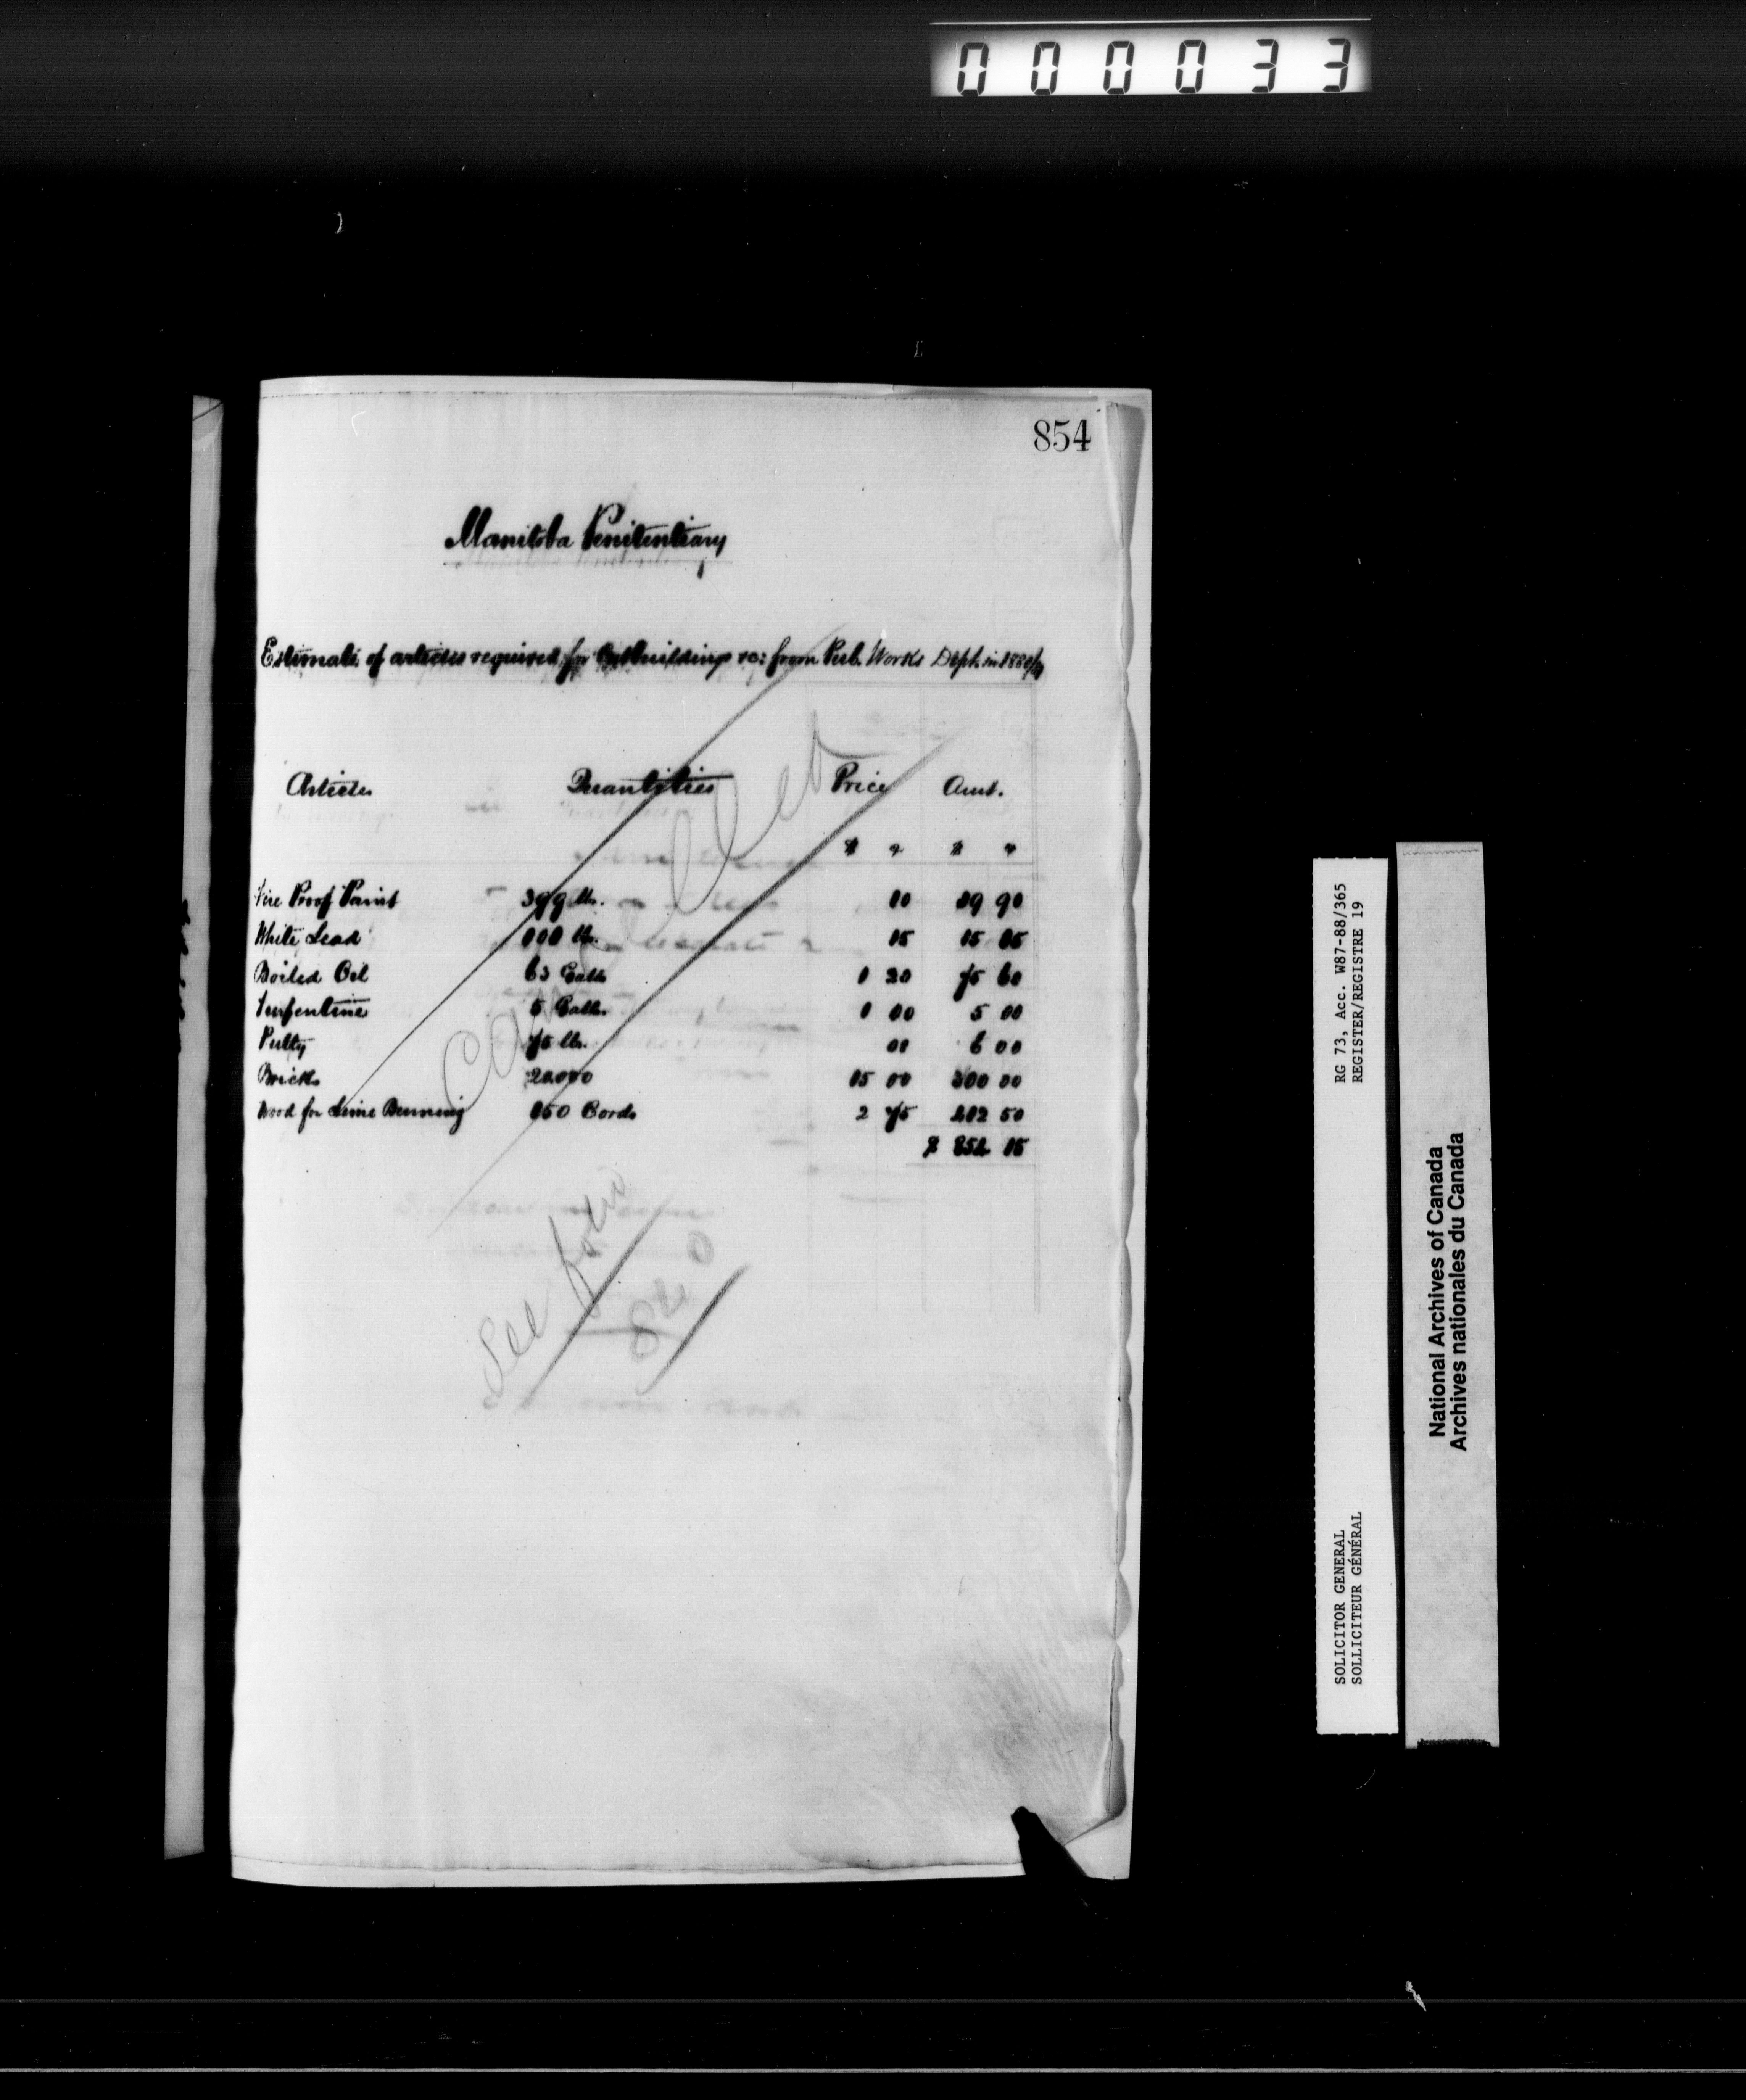 000033
854
Manitoba Penitentiary
Estimate of articles required for Outbuildings &c: from Pub. Works Dept. in 1880/1
Articles Quantities Price Amt.
$ c $ c
Fire Proof Paint 399 lbs. 10 39 90
White Lead 101 lbs. 15 15 15
Boiled Oil 63 Galls 1 20 75 60
Turpentine 5 Galls. 1 00 5 00
Putty 75 lbs. 08 6 00
Bricks 20.000 15 00 300 00
Wood for Lime Burning 150 Cords 2 75 412 50
$ 854 15
Cancelled
See folio
840
SOLICITOR GENERAL RG 73, Acc. W87-88/365
SOLLICITEUR GÉNÉRAL REGISTER/REGISTRE 19
National Archives of Canada
Archives nationales du Canada